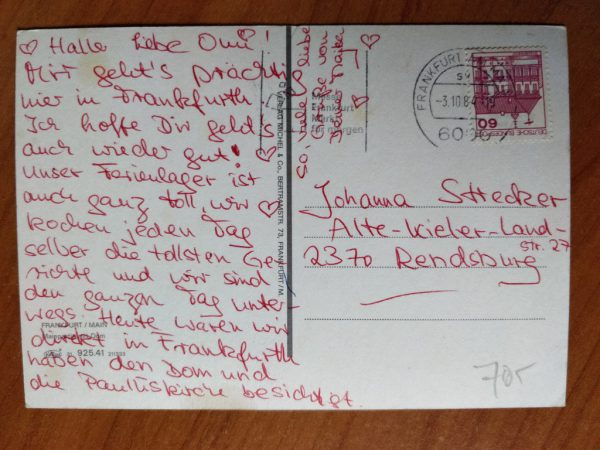 ♡ Hallo liebe Omi!
Mir geht's prächtig
hier in Frankfurth.
Ich hoffe Dir geht's
auch wieder gut!
Unser Ferienlager ist
auch ganz toll wir
kochen jeden Tag
selber die tollsten Ge-
richte und wir sind
den ganzen Tag unter-
wegs. Heute waren wir
direkt in Frankfurth
haben den Dom und
die Paulliskirche besichtigt.
So viele liebe
Grüße von
Deiner
FRANKFURT / MAIN
925.41
VERLAG MICHEL & Co., BERTRAMSTR. 73, FRANKFURT/M.
Messe
Frankfurt
Markt
für morgen
FRANKFURT
-3.10.84
60
60
DEUTSCHE BUNDESPOST
Johanna Strecker
Alte-Kieler-Land-
str. 27
2370 Rendsburg
70,-